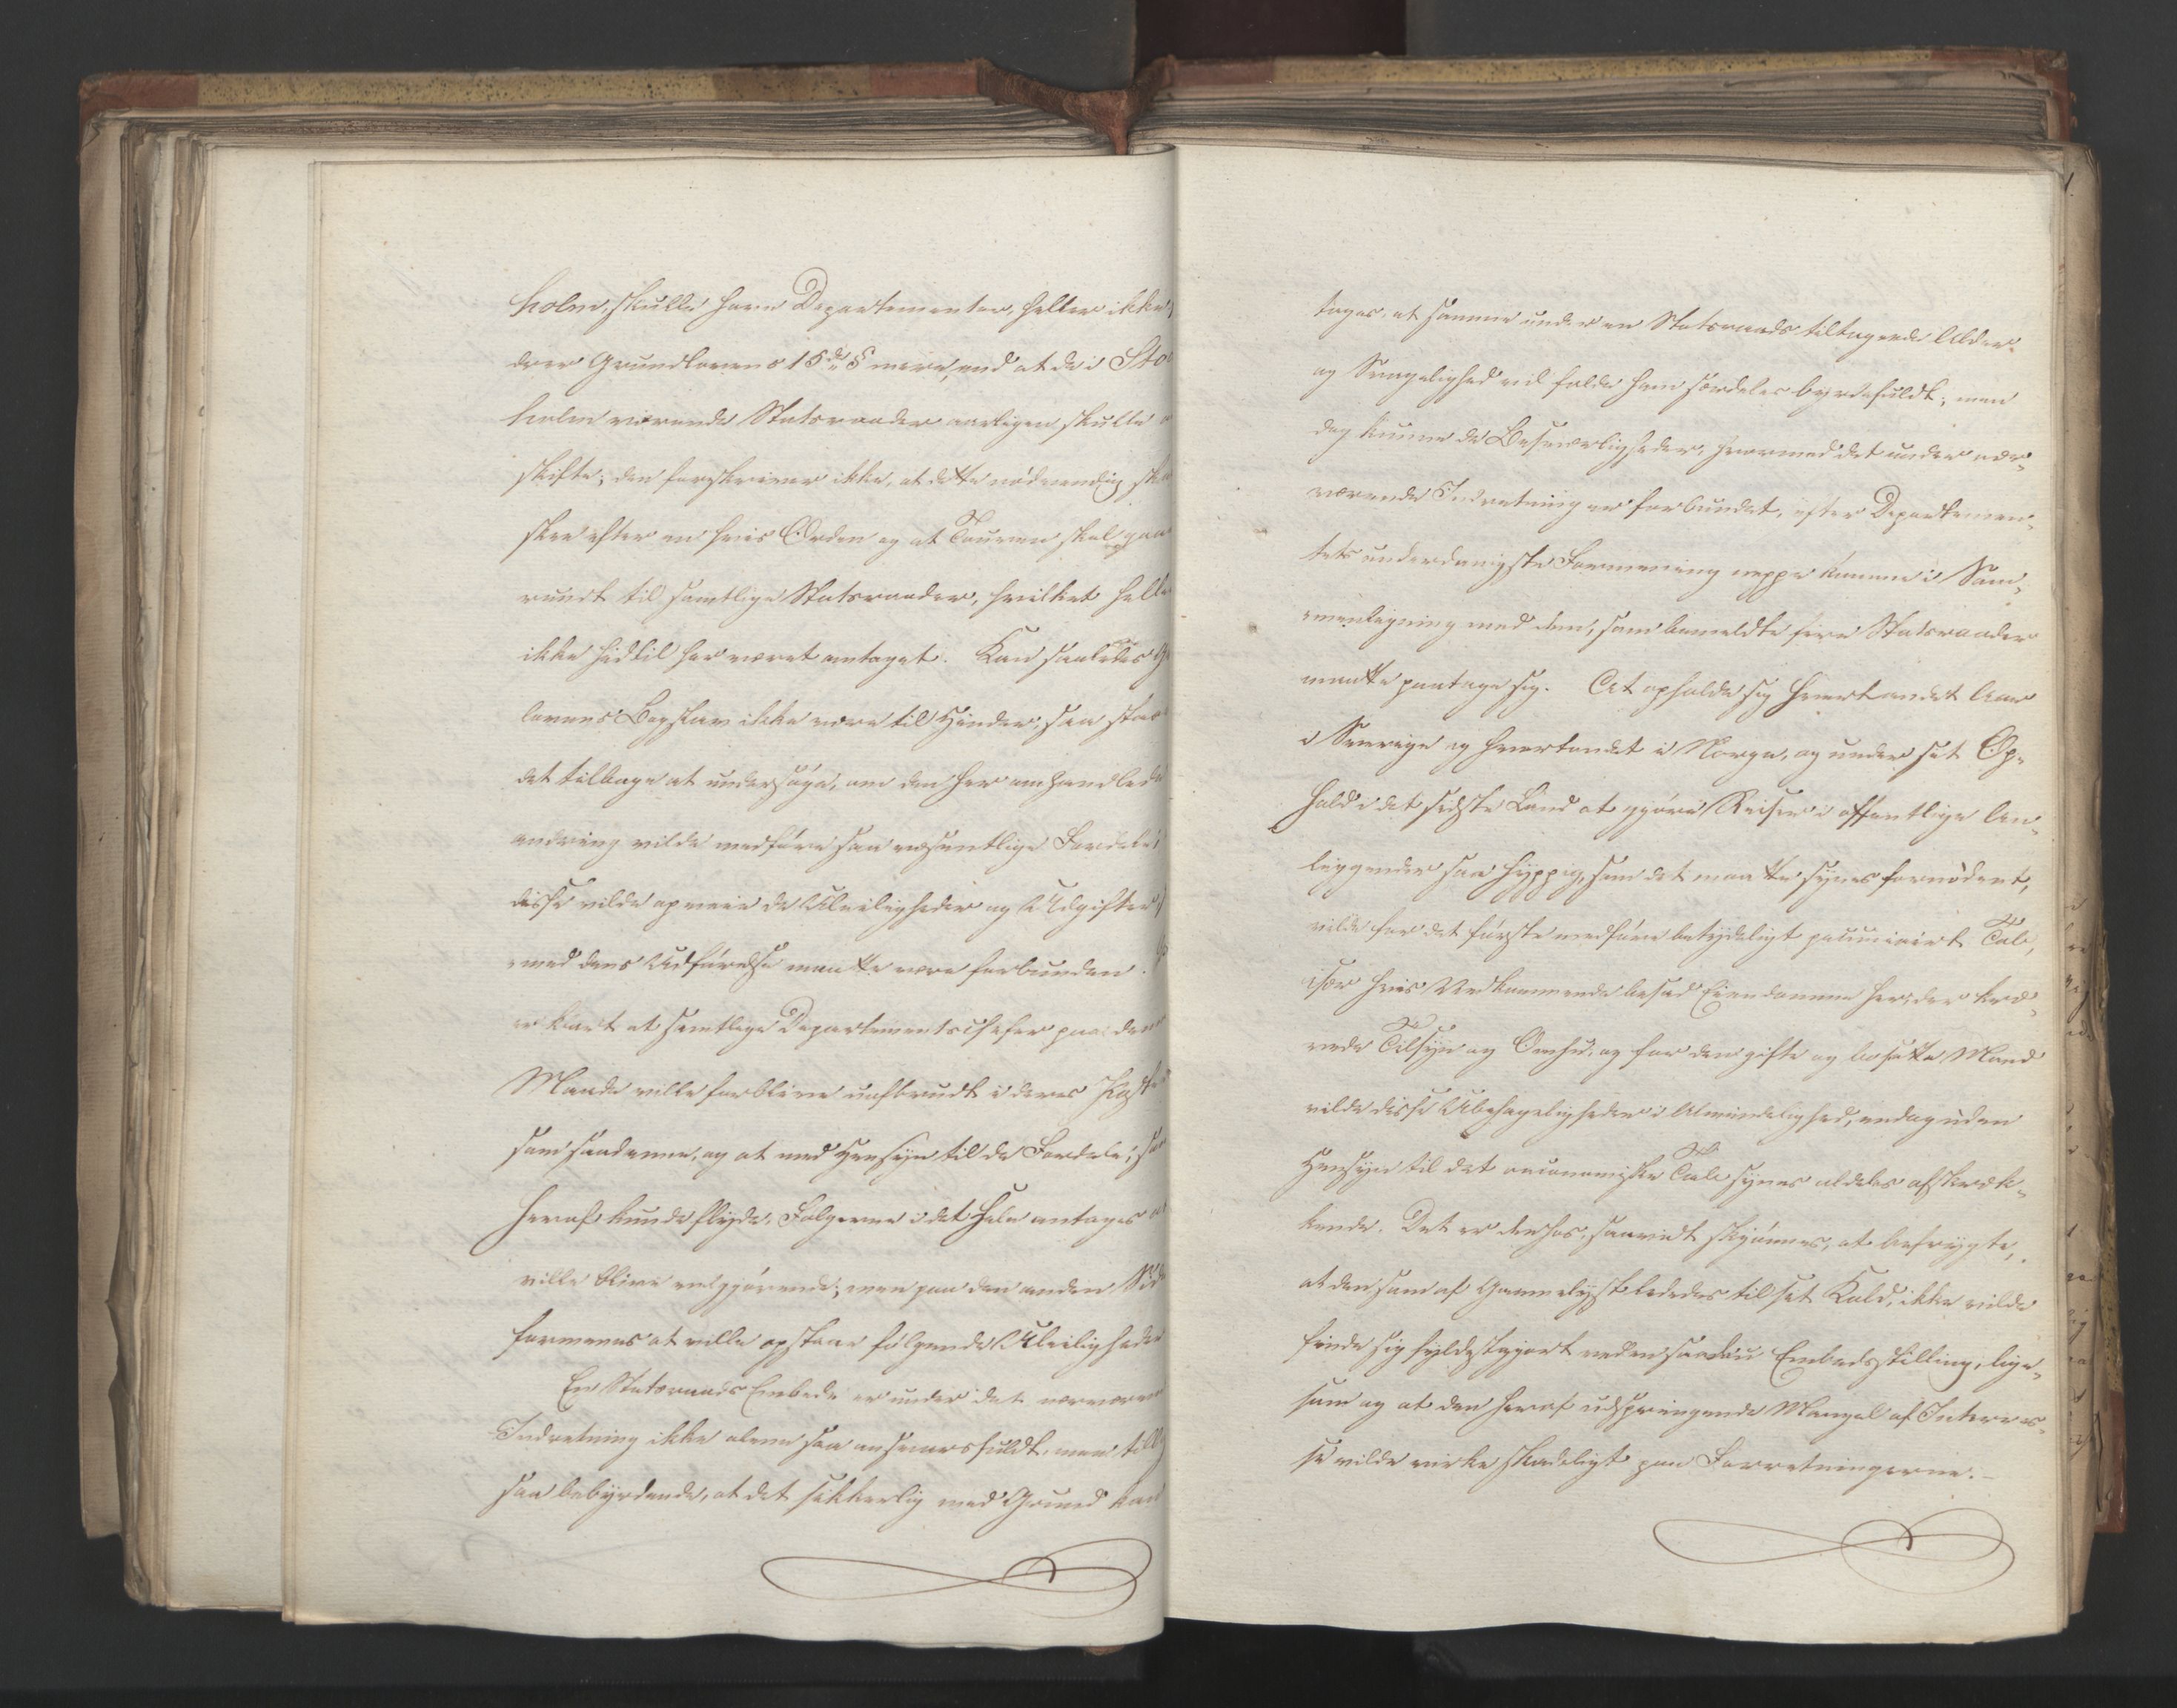 holm, skulle have Departementer, heller ikke
drer Grundlovens 15de § mere, end at de i Sto
holm værende Statsraader aarligen skulle
skifte; den foreskriver ikke, at dette nødvendig
skee efter en hvis Orden og at Touren skal gaae
rundt til samtlige Statsraader, hvilket helle
ikke hidtil har været antaget. Kan saaledes G
lovens Bogstav ikke være til Hinder, saa staae
det tilbage at undersøge, om den her omhandlede
andring vilde medføre saa væsentlige Fordele,
disse vilde opveie de Uleiligheder og Udgifter,
med dens Udførelse maatte være forbunden.
er klart at samtlige Departementschefer paa denne
Maade ville forblive uafbrudt i deres Post
som saadanne, og at med Hensyn til de Fordele, som
heraf kunde flyde, Følgerne i det Hele antages at
ville blive velgjørende; men paa den anden Side
formenes at ville opstaae følgende Uleiligheder
En Statsraads Embede er under det nærvære
Indretning ikke alene saa ansvarsfuldt, men till
saa bebyrdende, at det sikkerlig med Grund kan
tages, at samme under en Statsraads tiltagende Alder
og Svagelighed vil falde ham særdeles byrdefuldt; men
dog kunne de Besværligheder, hvormed det under nær-
værende Indretning er forbundet, efter Departemen-
tets underdanigste Formening neppe komme i Sam-
menligning med den, som bemeldte fire Statsraader
maatte paatage sig. At opholde sig hvertandet Aar
i Sverige og hvertandet i Norge, og under sit Op-
hold i det sidste Land at gjøre Reiser i offentlige An-
liggender saa hyppig, som det maatte synes fornødent,
vilde for det første medføre betydeligt pecuniairt Tab,
især hvis Vedkommende besad Eiendomme her, der kræ-
vede Tilsyn og Omhu, og for den gifte og bosatte Mand
vilde disse Ubehageligheder i Almindelighed, endog uden
Hensyn til det oeconomiske Tab synes aldeles afskræk-
kende. Det er derhos, saavidt skjønnes, at befrygte,
at den som af Hammelyst lededes til sit Kald, ikke vilde
finde sig fyldestgjort ved en saadan Embedsstilling, lige-
som og at den heraf udspringende Mangel af Interes-
se vilde virke skadeligt paa Forretningerne. –